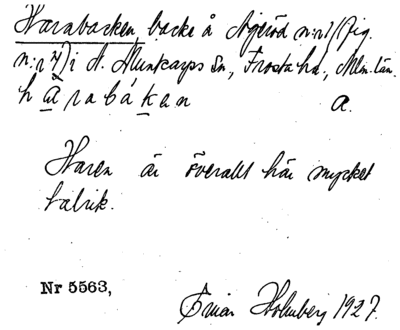 Harabacken, backe å Nygård n:r 1 (fig.
n:r 7) i N. Munkarps sn, Frosta hd, Mlm. län.
harabákẹn a.
Haren är överallt här mycket
talrik.
Nr 5563, Einar Holmberg 1927.